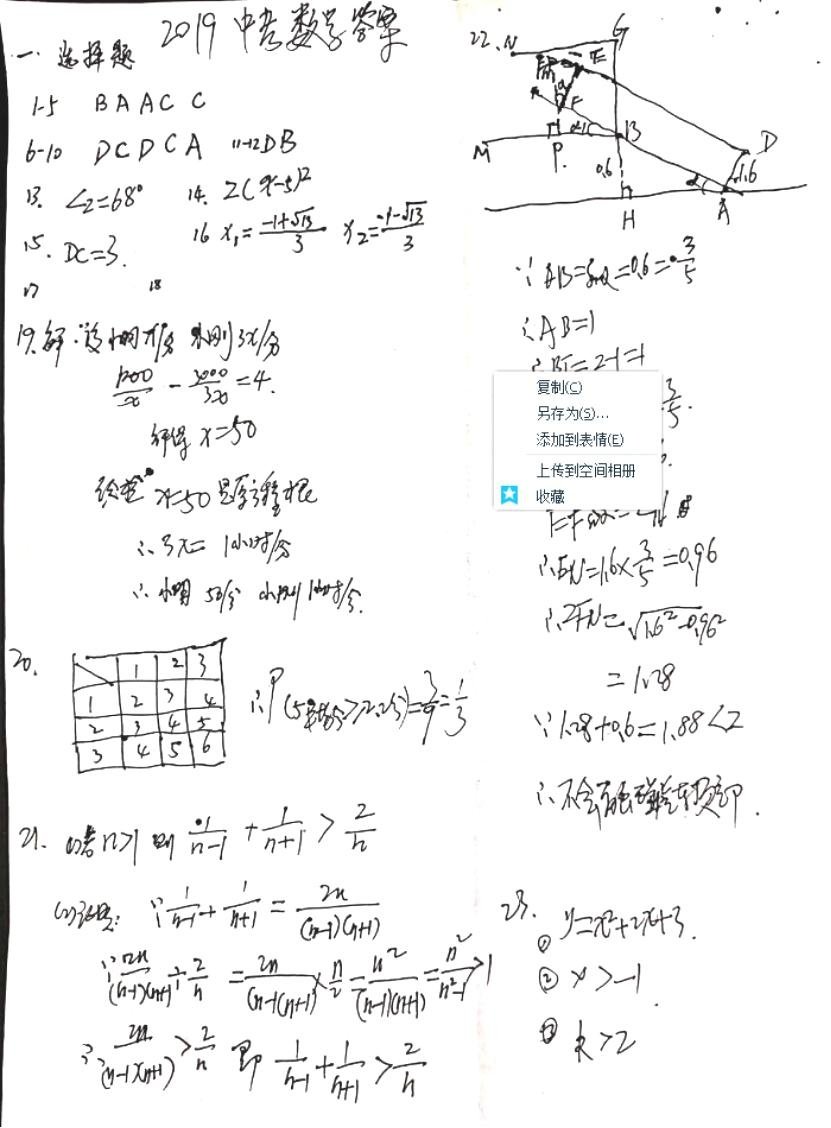 2019 中考数学答案
一. 选择题
1-5 B A A C C
6-10 D C D C A 11-12 D B
13. ∠2=68° 14. 2(x-5)²
15. DC=3. 16 x₁=(-1+√13)/3 x₂=(-1-√13)/3
17 18
19. 解:设小明x/分 小刚3x/分
1200/x - 3000/3x =4.
解得 x=50
经检 x=50 是原方程根
∴3x=
∴小明 50/分 小刚
20.
1 2 3
1 2 3 4
2 3 4 5
3 4 5 6
∴P =3/9=1/3
21. (1)若n>1 则 1/(n-1) + 1/(n+1) > 2/n
(2)证明: ∵1/(n-1) + 1/(n+1) = 2n/(n-1)(n+1)
∵2n/(n-1)(n+1) ÷ 2/n = 2n/(n-1)(n+1) × n/2 = n²/(n-1)(n+1) = n²/(n²-1) >1
∴2n/(n-1)(n+1) > 2/n 即 1/(n-1) + 1/(n+1) > 2/n
22. N G
E
F
M P. B D
0.6 α 1.6
H A
=0.6=3/5
∴AB=1
=2-1=1
复制(C)
另存为(S)...
添加到表情(E)
上传到空间相册
收藏
3/5.
∴EN=1.6×3/5=0.96
∴FN=√(1.6²-0.96²)
=1.28
∵1.28+0.6=1.88<2
∴不会碰车顶部.
23. ① y=x²+2x+3.
② x>-1
③ k>2